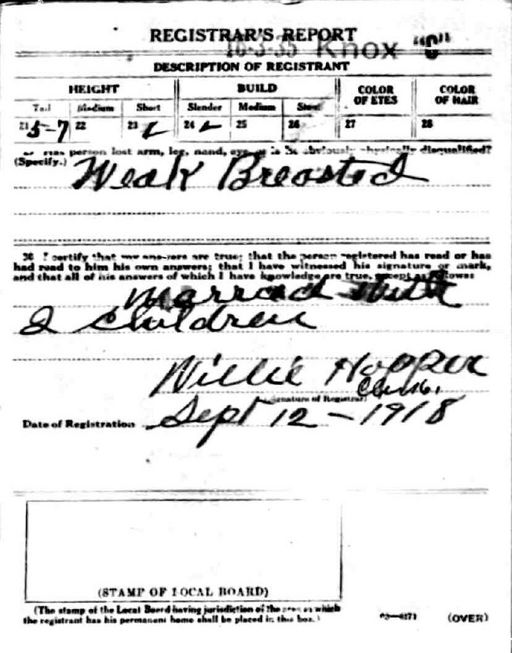 REGISTRAR'S REPORT
16-3-35 Knox "C"
DESCRIPTION OF REGISTRANT
HEIGHT BUILD COLOR OF EYES COLOR OF HAIR
Tall Medium Short Slender Medium Stout
21 5-7 22 23 24 25 26 27 28
29 Has person lost arm, leg, hand, eye, or is he obviously physically disqualified?
(Specify.) Weak Breasted
30 I certify that my answers are true; that the person registered has read or has
had read to him his own answers; that I have witnessed his signature or mark,
and that all of his answers of which I have knowledge are true, except as follows:
Marread with
2 children
Willie Hopper
(Signature of Registrar)
Date of Registration Sept 12 - 1918
(STAMP OF LOCAL BOARD)
(The stamp of the Local Board having jurisdiction of the area in which
the registrant has his permanent home shall be placed in this box.)
03—6171 (OVER)